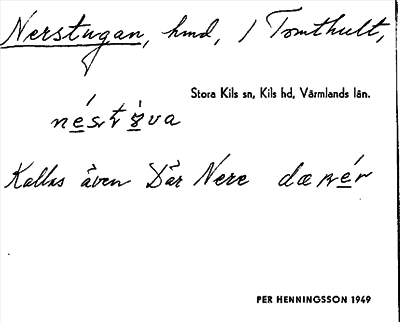 Nerstugan, hmd, / Tomthult,
Stora Kils sn, Kils hd, Värmlands län.
Kallas även Där Nere
PER HENNINGSSON 1949